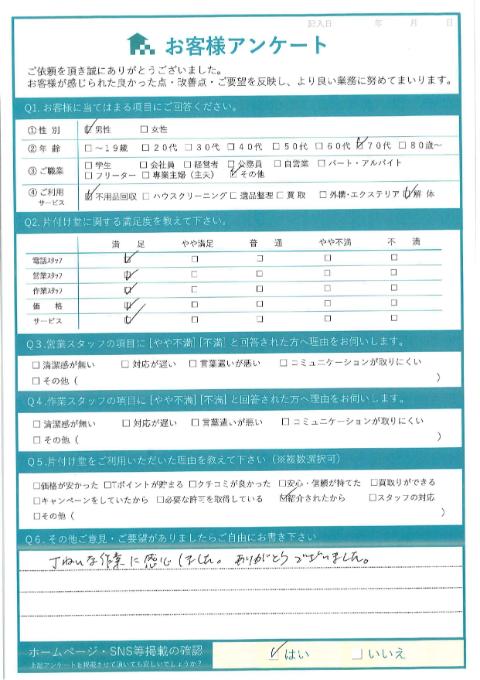 記入日　年　月　日
お客様アンケート
ご依頼を頂き誠にありがとうございました。
お客様が感じられた良かった点・改善点・ご要望を反映し、より良い業務に努めてまいります。
Q1. お客様に当てはまる項目にご回答ください。
①性 別 ☑男性 □女性
②年 齢 □～19歳 □20代 □30代 □40代 □50代 □60代 ☑70代 □80歳～
③ご職業 □学生 □会社員 □経営者 □公務員 □自営業 □パート・アルバイト
□フリーター □専業主婦（主夫） ☑その他
④ご利用サービス ☑不用品回収 □ハウスクリーニング □遺品整理 □買取 □外構・エクステリア ☑解体
Q2. 片付け堂に関する満足度を教えて下さい。
満 足 やや満足 普 通 やや不満 不 満
電話スタッフ ☑ □ □ □ □
営業スタッフ ☑ □ □ □ □
作業スタッフ ☑ □ □ □ □
価 格 ☑ □ □ □ □
サービス ☑ □ □ □ □
Q3. 営業スタッフの項目に［やや不満］［不満］と回答された方へ理由をお伺いします。
□清潔感が無い □対応が遅い □言葉遣いが悪い □コミュニケーションが取りにくい
□その他（ ）
Q4. 作業スタッフの項目に［やや不満］［不満］と回答された方へ理由をお伺いします。
□清潔感が無い □対応が遅い □言葉遣いが悪い □コミュニケーションが取りにくい
□その他（ ）
Q5. 片付け堂をご利用いただいた理由を教えて下さい（※複数選択可）
□価格が安かった □Tポイントが貯まる □クチコミが良かった □安心・信頼が持てた □買取りができる
□キャンペーンをしていたから □必要な許可を取得している ☑紹介されたから □スタッフの対応
□その他（ ）
Q6. その他ご意見・ご要望がありましたらご自由にお書き下さい
丁ねいな作業に感心しました。ありがとうございました。
ホームページ・SNS等掲載の確認 ☑はい □いいえ
上記アンケートを掲載させて頂いても宜しいでしょうか？